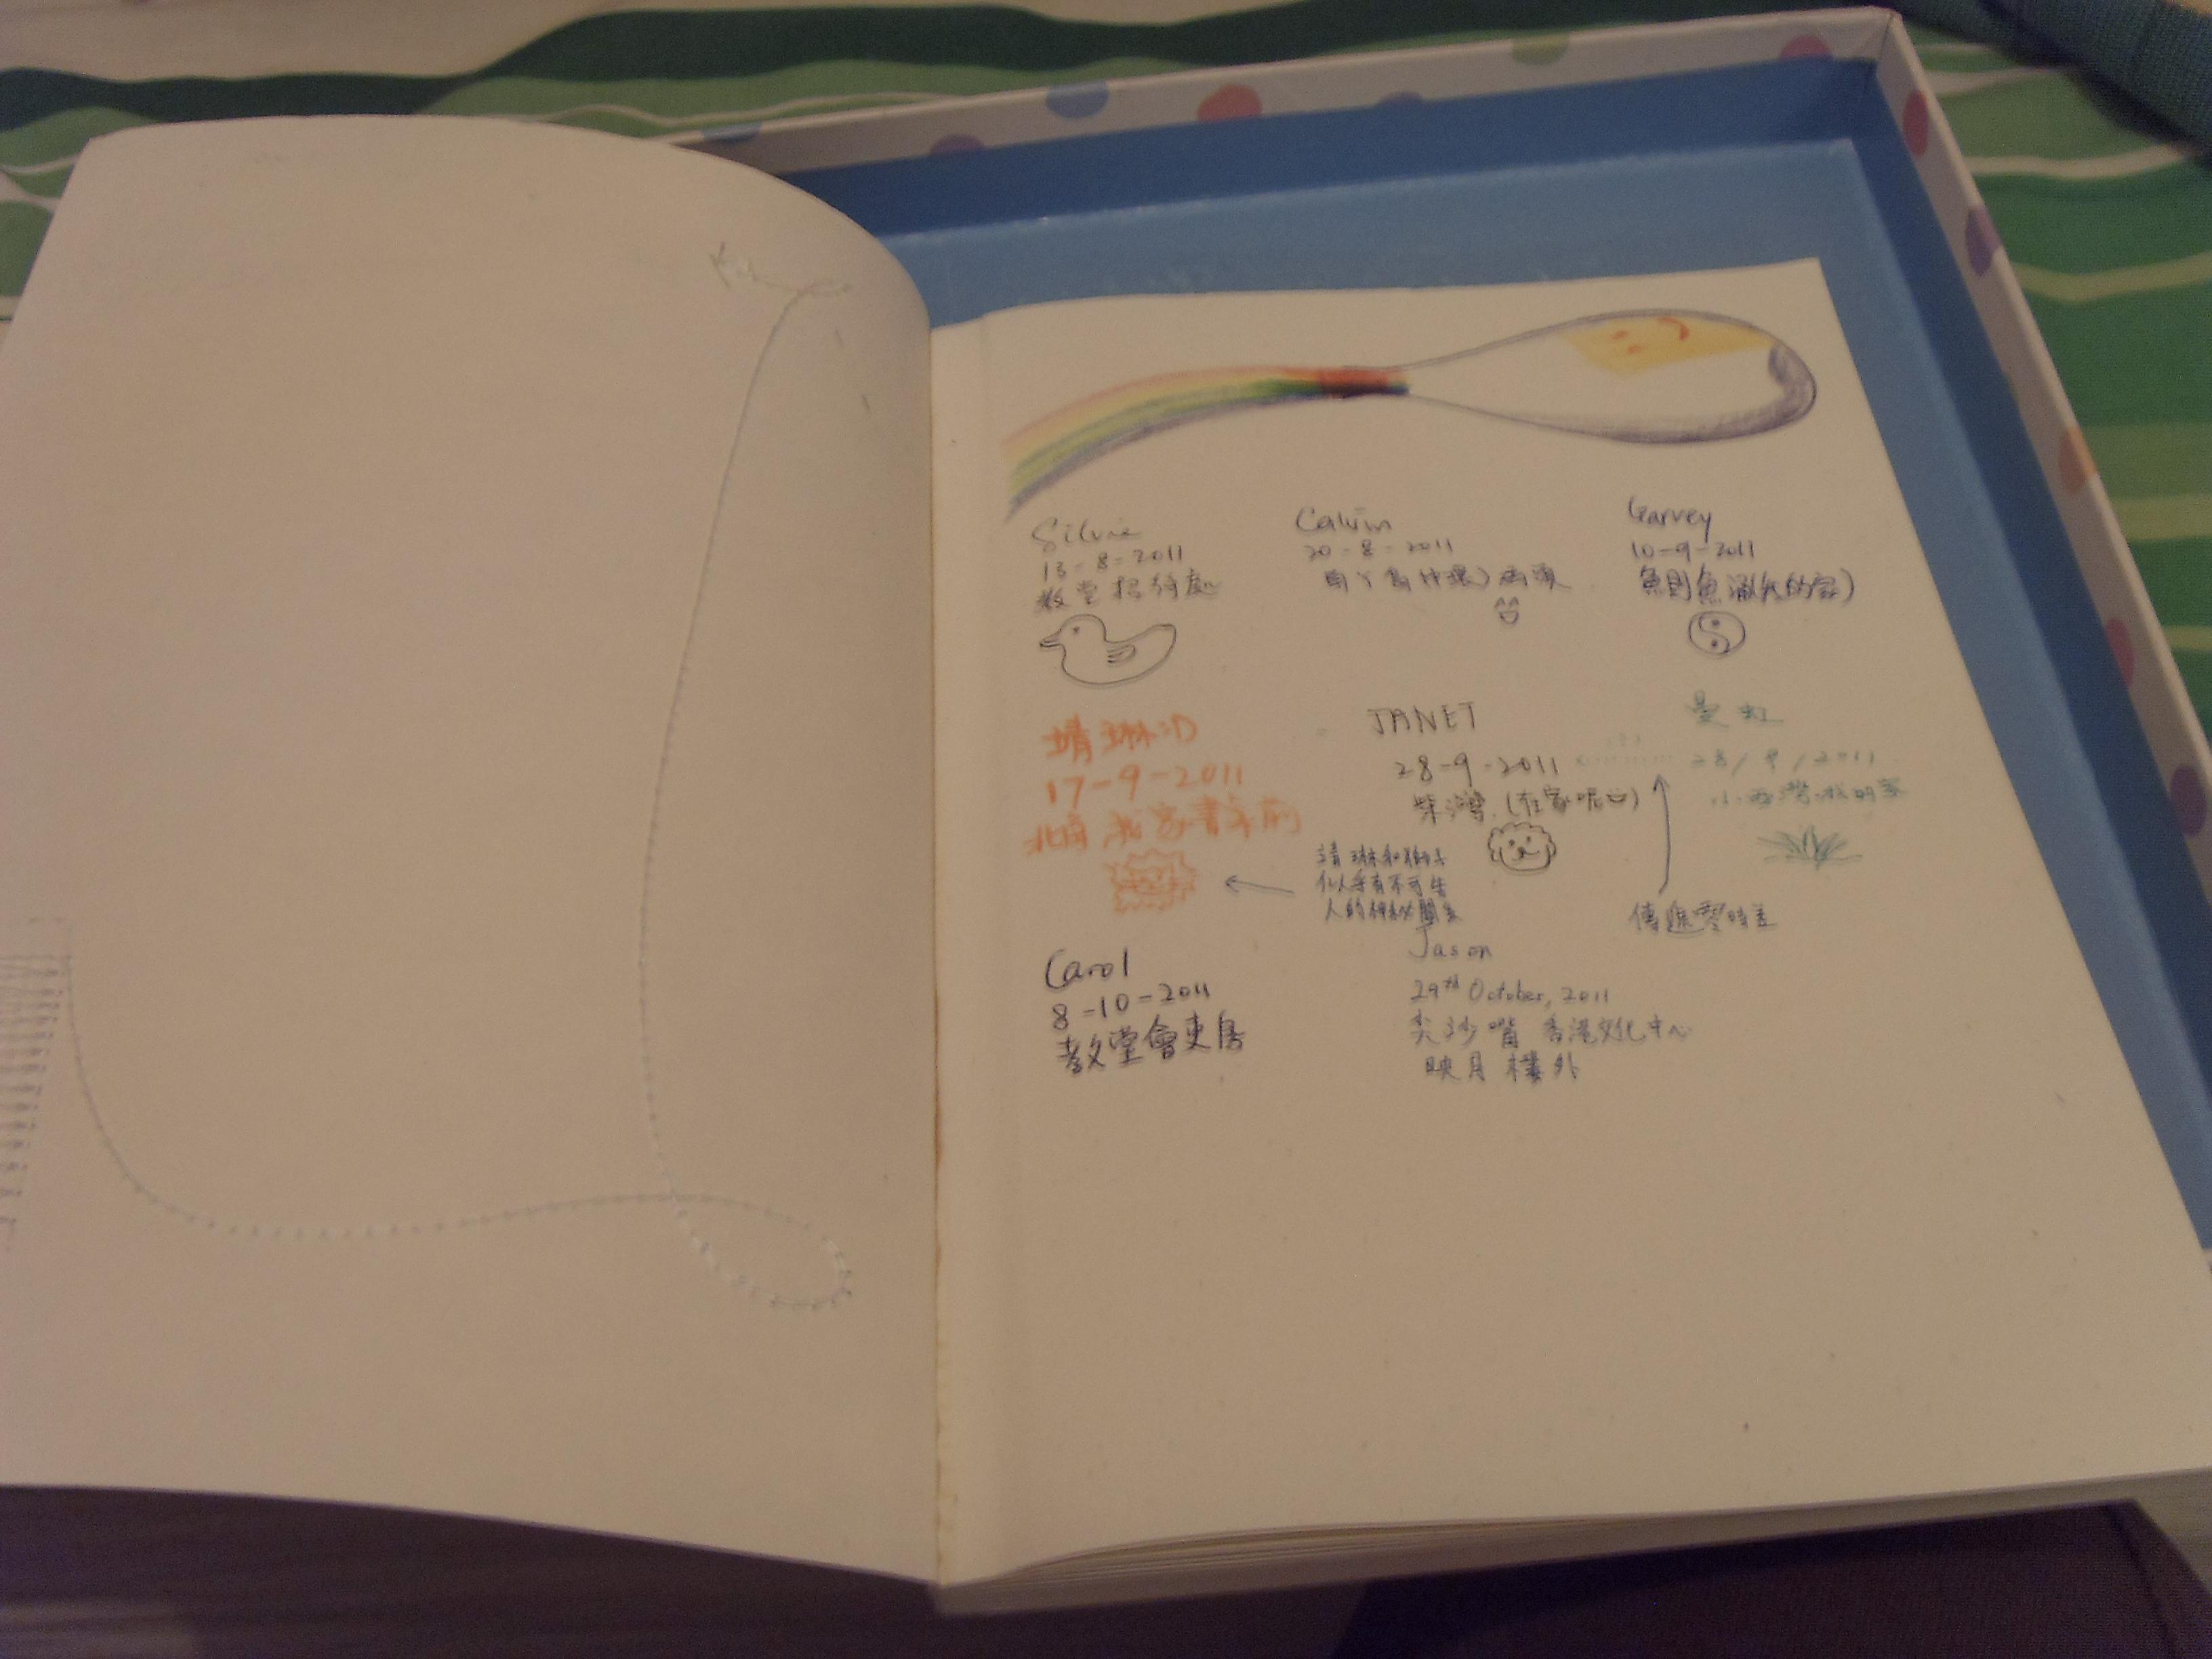 Silvie
13-8-2011
教堂招待處
Calvin
20-8-2011
Garvey
10-9-2011
靖琳
17-9-2011
北角 我家書桌前
JANET
28-9-2011
柴灣 (在家呢
曼虹
28/9/2011
小西灣 我的家
靖琳和獅子
似乎有不可告
人的神秘關係
傳遞零時差
Carol
8-10-2011
教堂會吏房
Jason
29th October, 2011
尖沙嘴 香港文化中心
映月樓外